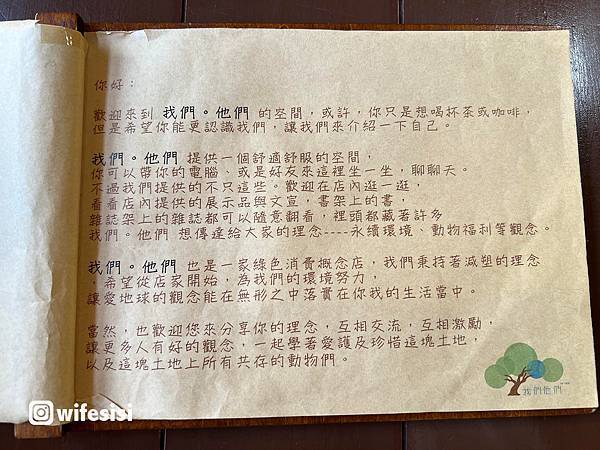 你好：
歡迎來到 我們。他們 的空間，或許，你只是想喝杯茶或咖啡，
但是希望你能更認識我們，讓我們來介紹一下自己。
我們。他們 提供一個舒適舒服的空間，
你可以帶你的電腦、或是好友來這裡坐一坐，聊聊天。
不過我們提供的不只這些。歡迎在店內逛一逛，
看看店內提供的展示品與文宣，書架上的書，
雜誌架上的雜誌都可以隨意翻看，裡頭都藏著許多
我們。他們 想傳達給大家的理念----永續環境、動物福利等觀念。
我們。他們 也是一家綠色消費概念店，我們秉持著減塑的理念
，希望從店家開始，為我們的環境努力，
讓愛地球的觀念能在無形之中落實在你我的生活當中。
當然，也歡迎您來分享你的理念，互相交流，互相激勵，
讓更多人有好的觀念，一起學著愛護及珍惜這塊土地，
以及這塊土地上所有共存的動物們。
我們他們
wifesisi